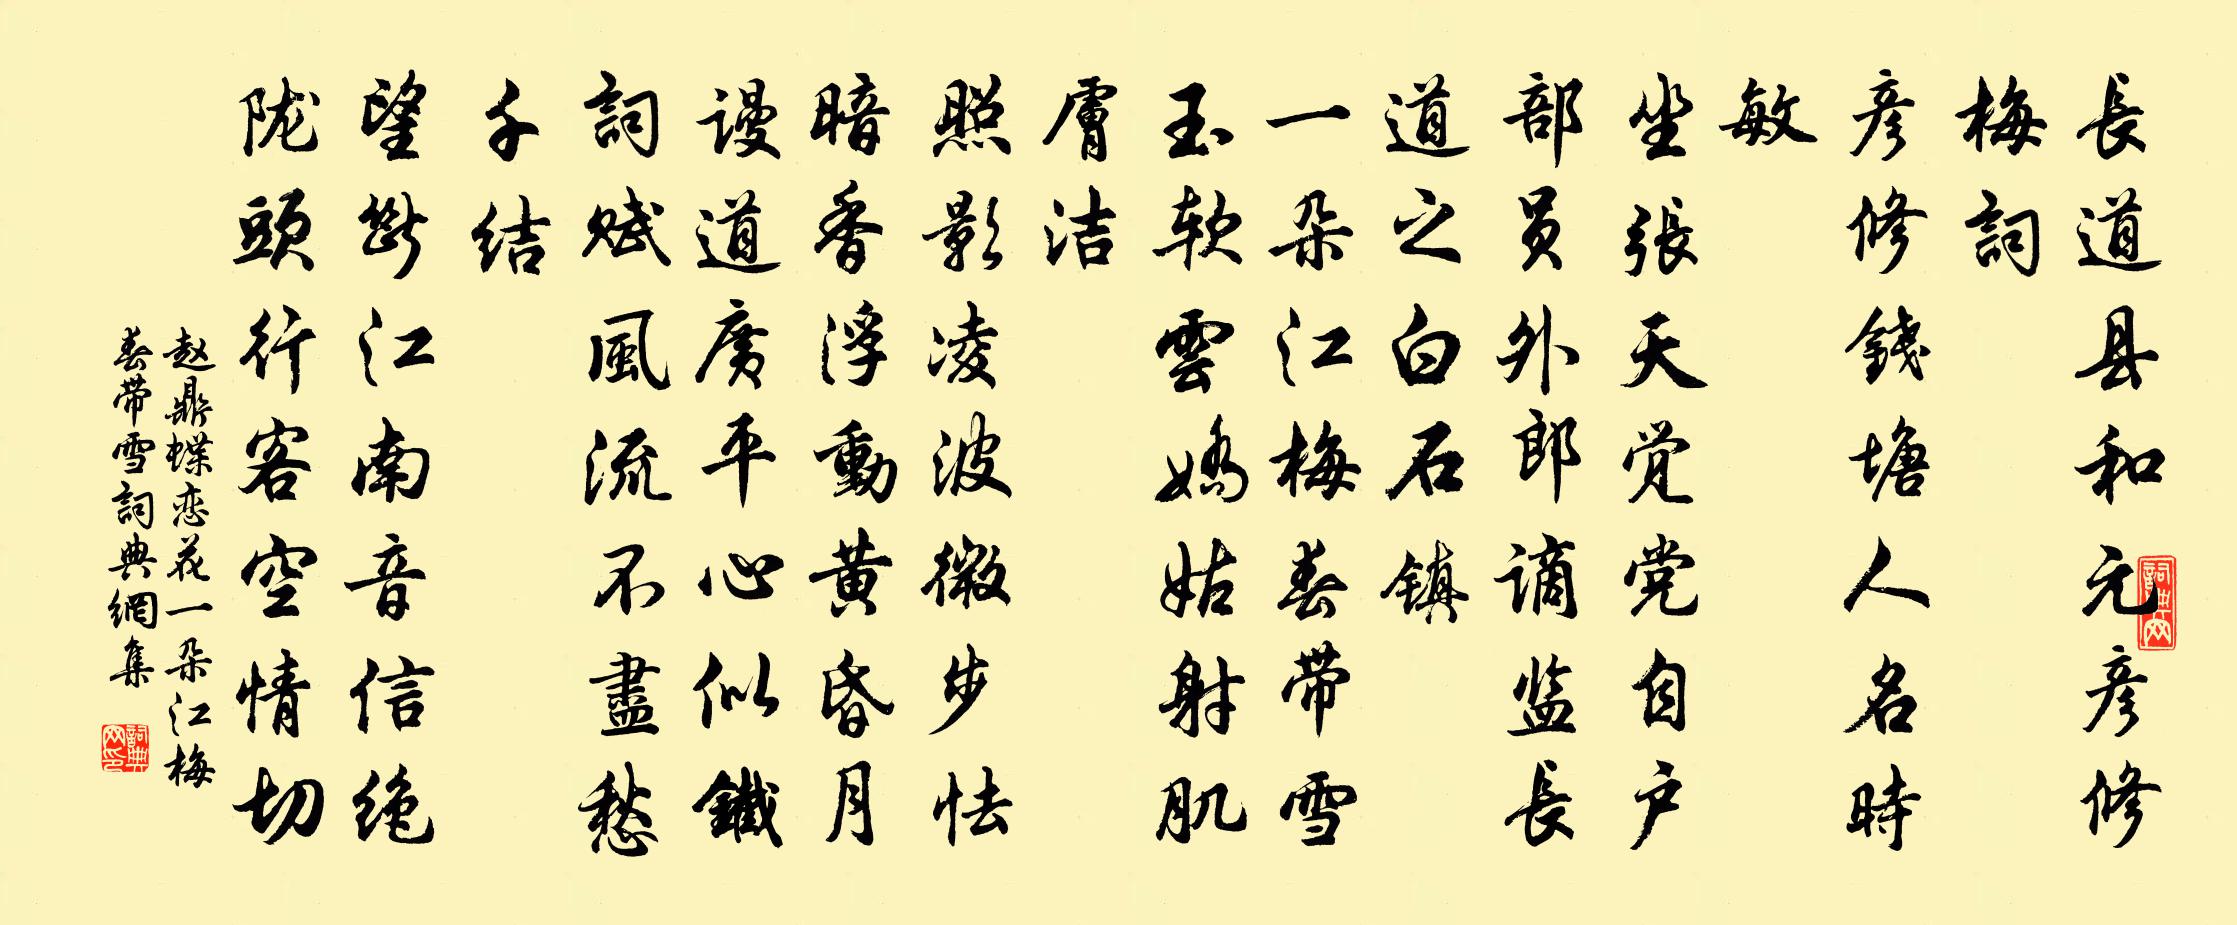 長道县和元彦修
梅詞
彦修錢塘人名時
敏
坐張天觉党自户
部员外郎谪监長
道之白石镇
一朵江梅春带雪
玉软雲嬌姑射肌
膚洁
照影凌波微步怯
暗香浮動黄昏月
谩道广平心似鐵
詞赋風流不盡愁
千结
望斷江南音信绝
陇頭行客空情切
赵鼎蝶恋花一朵江梅
春带雪詞典網集
詞典网
詞典网印